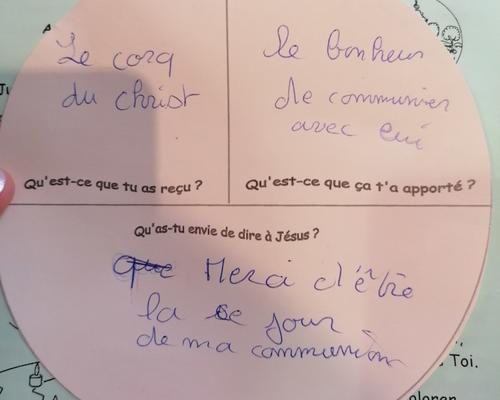 Le corq
du christ
Qu'est-ce que tu as reçu ?
le bonheur
de communier
avec lui
Qu'est-ce que ça t'a apporté ?
Qu'as-tu envie de dire à Jésus ?
Merci d'être
la ce jour
de ma communion
Toi.